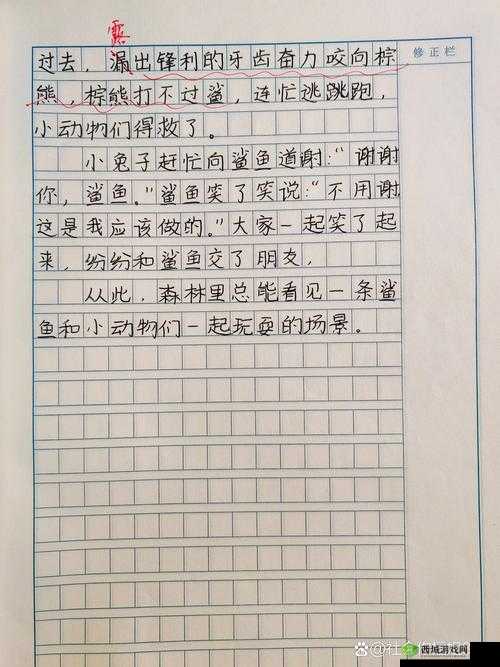 露
修正栏
过去，漏出锋利的牙齿奋力咬向棕
熊，棕熊打不过鲨，连忙逃跳跑，
小动物们得救了。
小兔子赶忙向鲨鱼道谢：“谢谢
你，鲨鱼。”鲨鱼笑了笑说：“不用谢
这是我应该做的。”大家一起笑了起
来，纷纷和鲨鱼交了朋友，
从此，森林里总能看见一条鲨
鱼和小动物们一起玩耍的场景。
西城游戏网